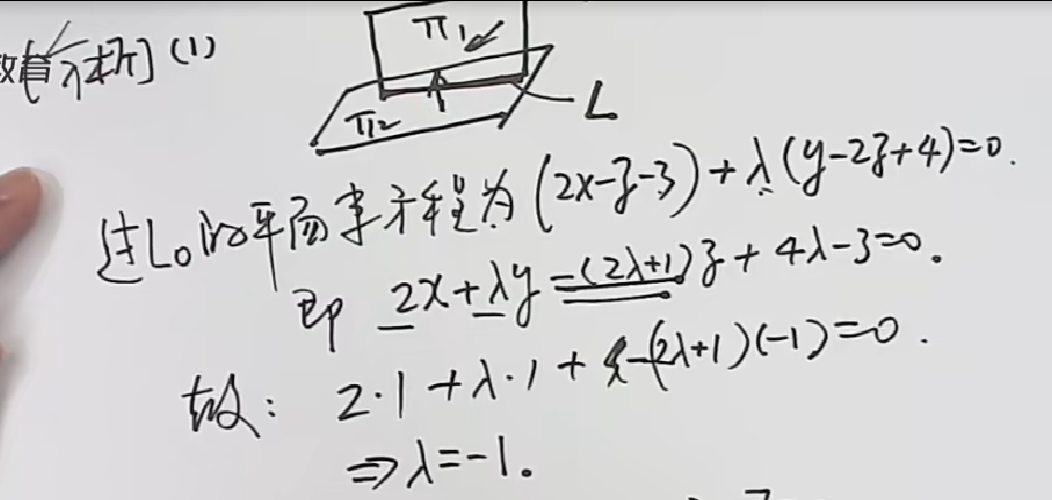 教育[分析](1)
π1
π2
L
过L₀的平面束方程为(2x-z-3)+λ(y-2z+4)=0.
即 2x+λy-(2λ+1)z+4λ-3=0.
故: 2·1+λ·1+[-(2λ+1)](-1)=0.
⇒λ=-1.